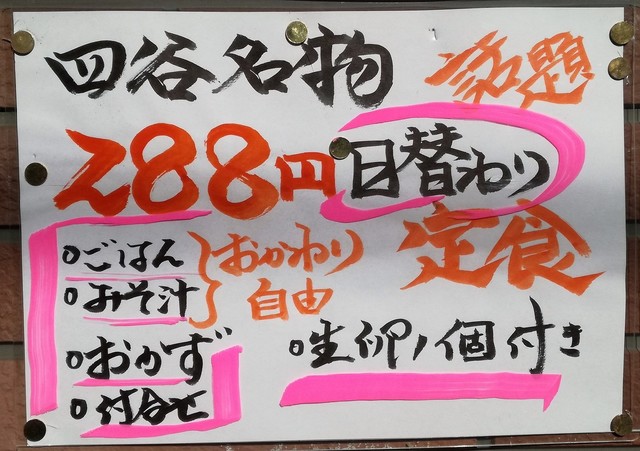 四谷名物 話題
288円 日替わり
定食
○ごはん
○みそ汁
おかわり
自由
○おかず
○付合せ
○生卵1個付き